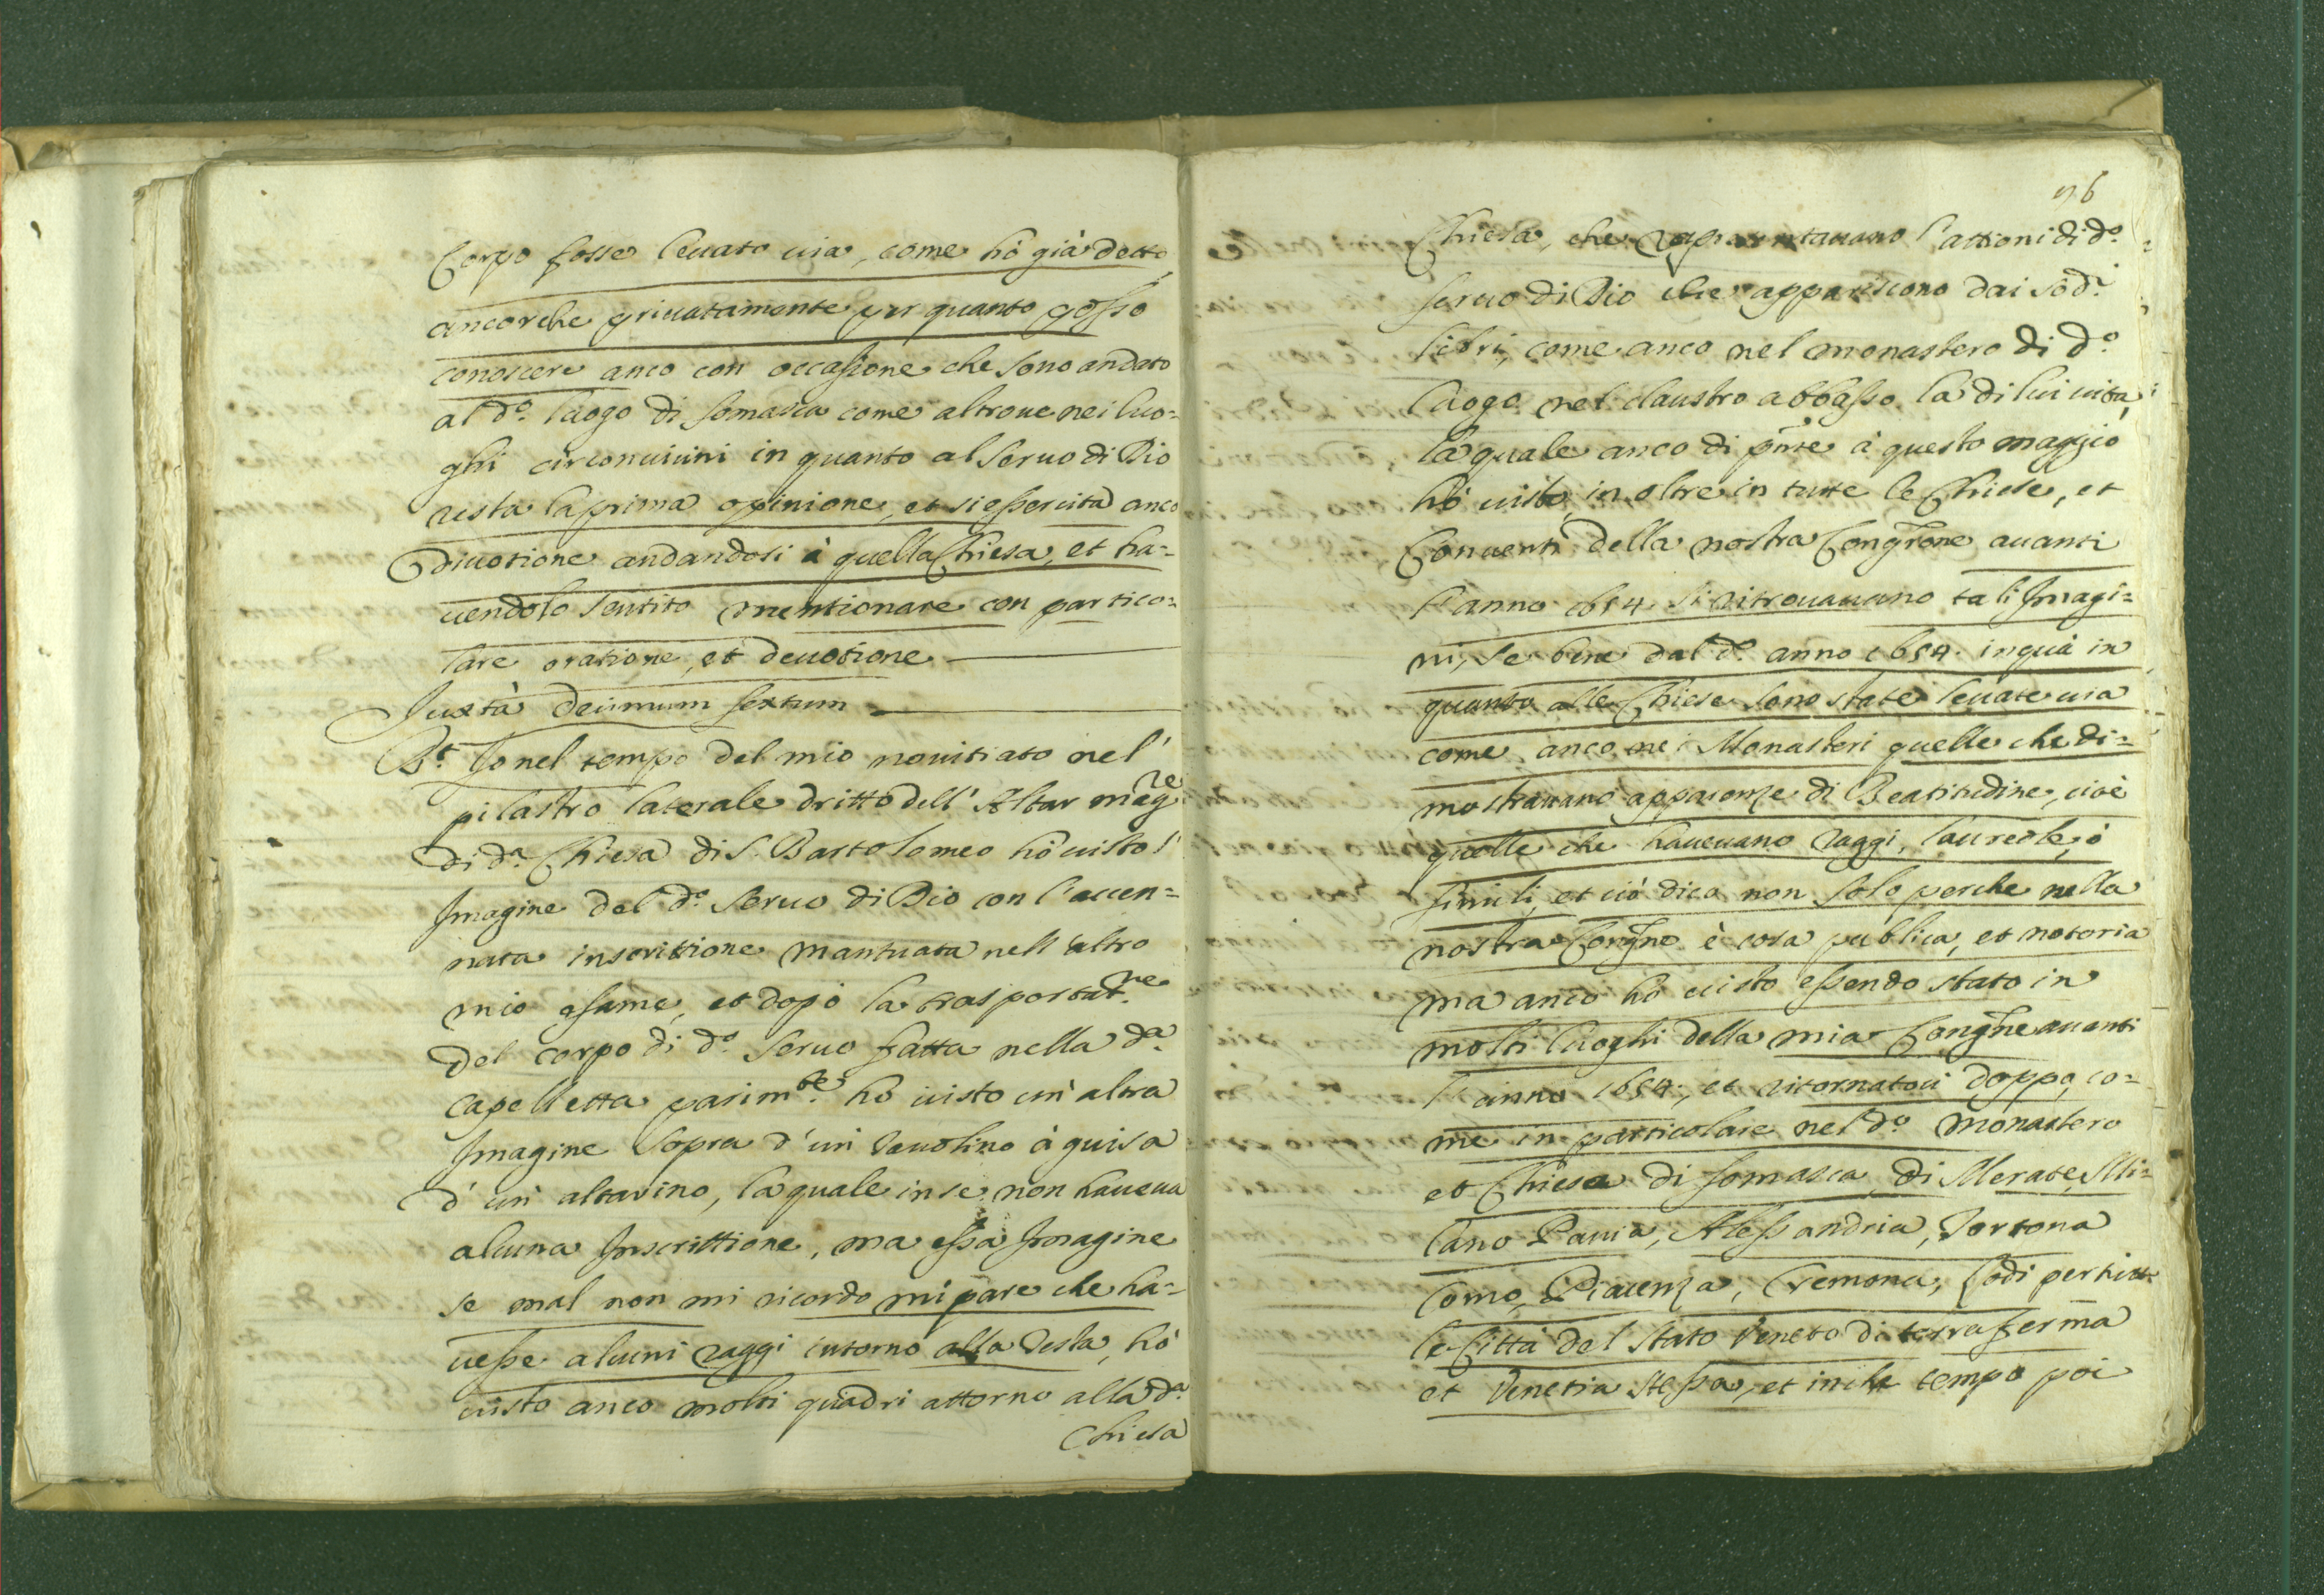 Corpo fosse leuato uia, come hò già detto
ancorche priuatamente per quanto posso
conoscere anco con occasione che sono andato
al d.º luogo di Somasca come altroue nei luo=
ghi circonuicini in quanto al Seruo di Dio
resta la prima opinione, et si essercita anco
diuotione andandosi à quella Chiesa, et ha=
uendolo sentito mentionare con partico=
lare oratione, et deuotione
Juxtà decimum sextum
R.t Jo nel tempo del mio nouitiato nel'
pilastro laterale dritto dell' Altar mag.re
di d.a Chiesa di S. Bartolomeo hò uisto l'
Jmagine del d.º Seruo di Dio con l'accen=
nata inscrittione mantuata nell'altro
mio esame, et dopò la trasportat.ne
del corpo di d.º Seruo fatta nella d.a
capelletta parim.te hò uisto un'altra
Jmagine sopra d'un tauolino à guisa
d'un altarino, la quale in se non haueua
alcuna Jnscrittione, ma essa Jmagine
se mal non mi ricordo mi pare che ha=
uesse alcuni raggi intorno alla testa, hò
uisto anco molti quadri attorno alla d.a
Chiesa
96
Chiesa, che rapresentauano l'attioni di d.º
Seruo di Dio che appariscono dai sod.i
libri, come anco nel monastero di d.º
luogo nel claustro abbasso la di lui uita,
la quale anco di pnte à questo maggio
hò uisto, in oltre in tutte le Chiese, et
Conuenti della nostra Congrone auanti
l'anno 1654. si ritrouauano tali Jmagi=
ni, se bene dal d.º anno 1654. in quà in
quanto alle Chiese sono state leuate uia
come anco nei Monasteri quelle che di=
mostrauano apparenze di Beatitudine, cioè
quelle che haueuano raggi, laureole, ò
simili, et ciò dico non solo perche nella
nostra Congne è cosa publica, et notoria
ma anco hò uisto essendo stato in
molti luoghi della mia Congne auanti
l'anno 1654., et ritornatoui doppo, co=
me in particolare nel d.º monastero
et Chiesa di Somasca, di Merate, Mi=
lano Pauia, Alessandria, Tortona
Como, Piacenza, Cremona, Lodi per tutte
le Città del Stato Veneto di terraferma
et Venetia stessa, et in che tempo poi